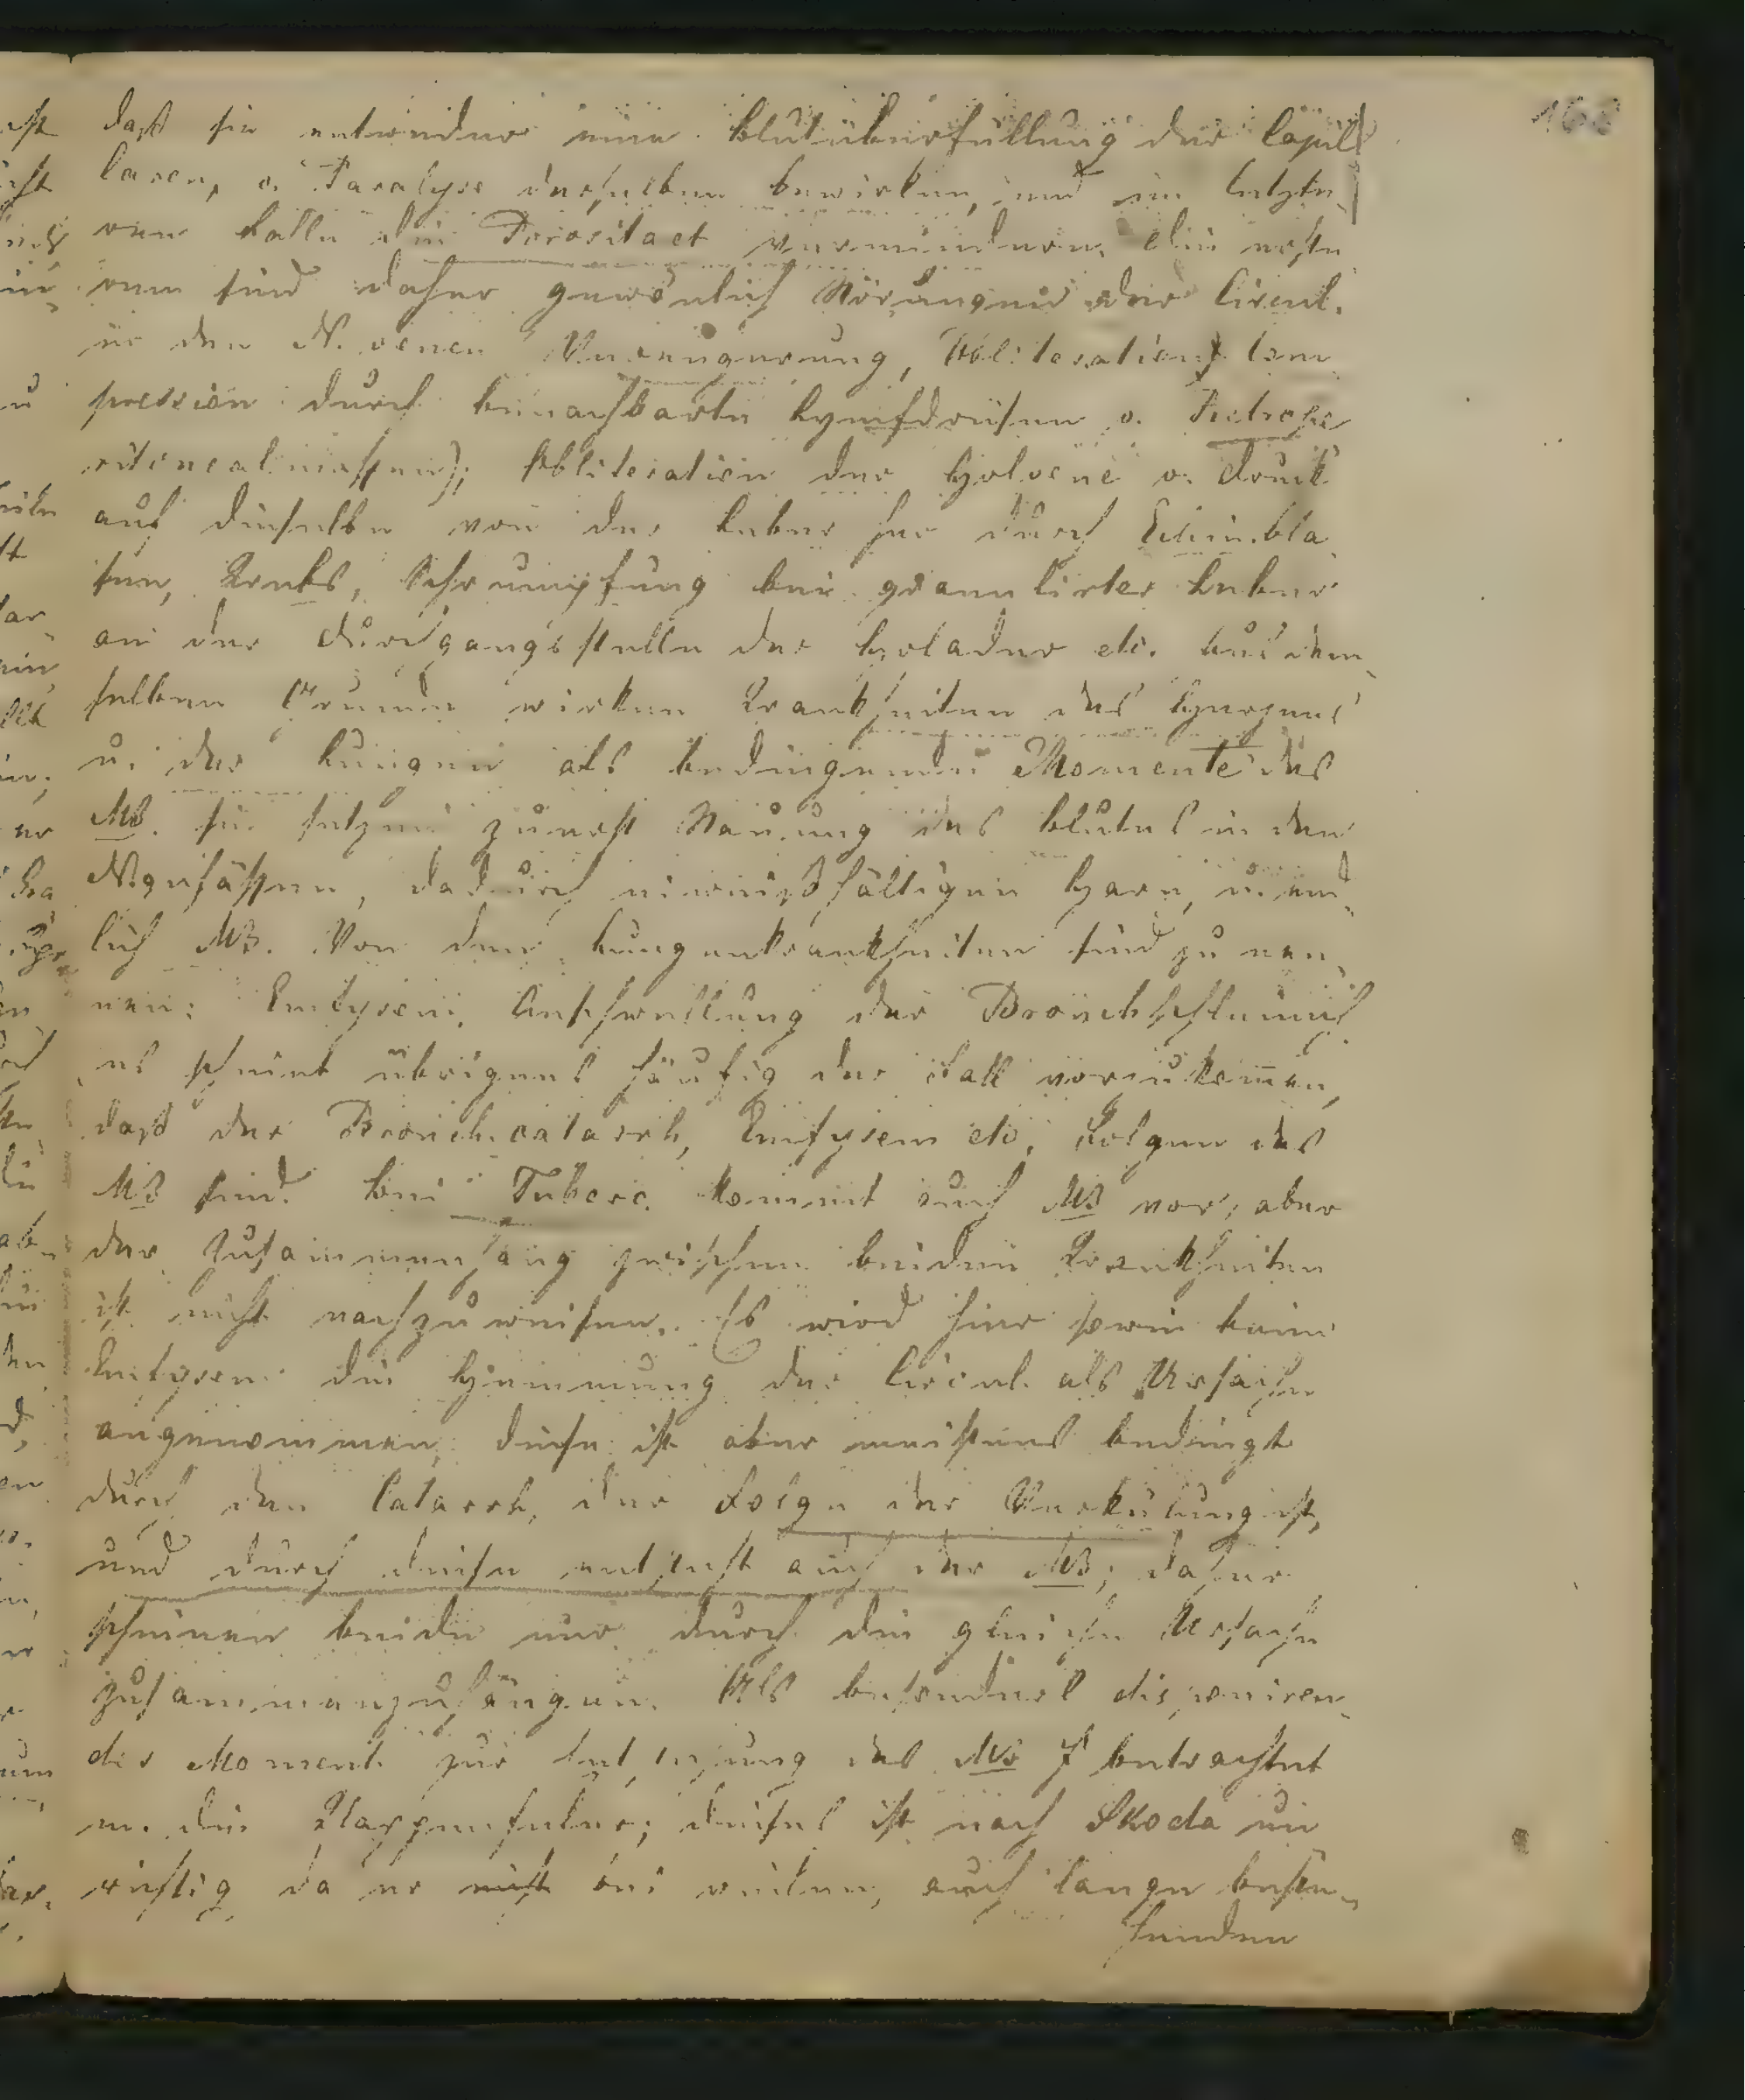 168
daß sie entweder eine Blutüberfüllung der Capil¬
laren, o. Paralyse derselben bewirken, und im letzte¬
ren Falle die Porositaet vermindern. Die erste¬
ren sind daher gewönlich Störungen der Circul.
in den N. venen Verengerung, Obliteration, Com¬
pression durch benachbarte Lymfdrüsen o. Retrope
ritonealmassen); Obliteration der Holvene o. Druck
auf dieselbe von der Leber her durch Echin. bla
sen, Krebs, Schrumpfung bei granulirter Leber
an der Durchgangsstelle der Holader etc. Aus dem¬
selben Grunde wirken Krankheiten des Herzens
u. der Lungen als bedingende Momente des
MB. sie setzen zuerst Stauung des Blutes in den
N.gefässen, dadurch eiweißhältigen Harn, u. end¬
lich MB. Von den Lungenkrankheiten sind zu nen¬
nen: Emfysem, Anschwellung der Bronchschleimh.
es scheint übrigens häufig der Fall vorzukom̅en,
daß der Bronch. catarrh, Emfysem etc. Folgen des
MB sind. Bei Tuberc. kommt auch MB vor; aber
der Zusammenhang zwischen beiden Krankheiten
ist nicht nachzuweisen. Es wird hier sowie beim
Emfysem die Hemmung der Circul. als Ursache
angenommen, diese ist aber meistens bedingt
durch den Catarrh, der Folge der Verkülung ist,
und durch diese entsteht auch der MB; daher
scheinen beide nur durch die gleiche Ursache
zusammenzuhängen. Als besonders disponiren¬
des Moment zur Entstehung des MB betrachtet
m. die Klappenfehler; dieses ist nach Skoda un
richtig da er nicht bei vielen, auch lange beste¬
henden